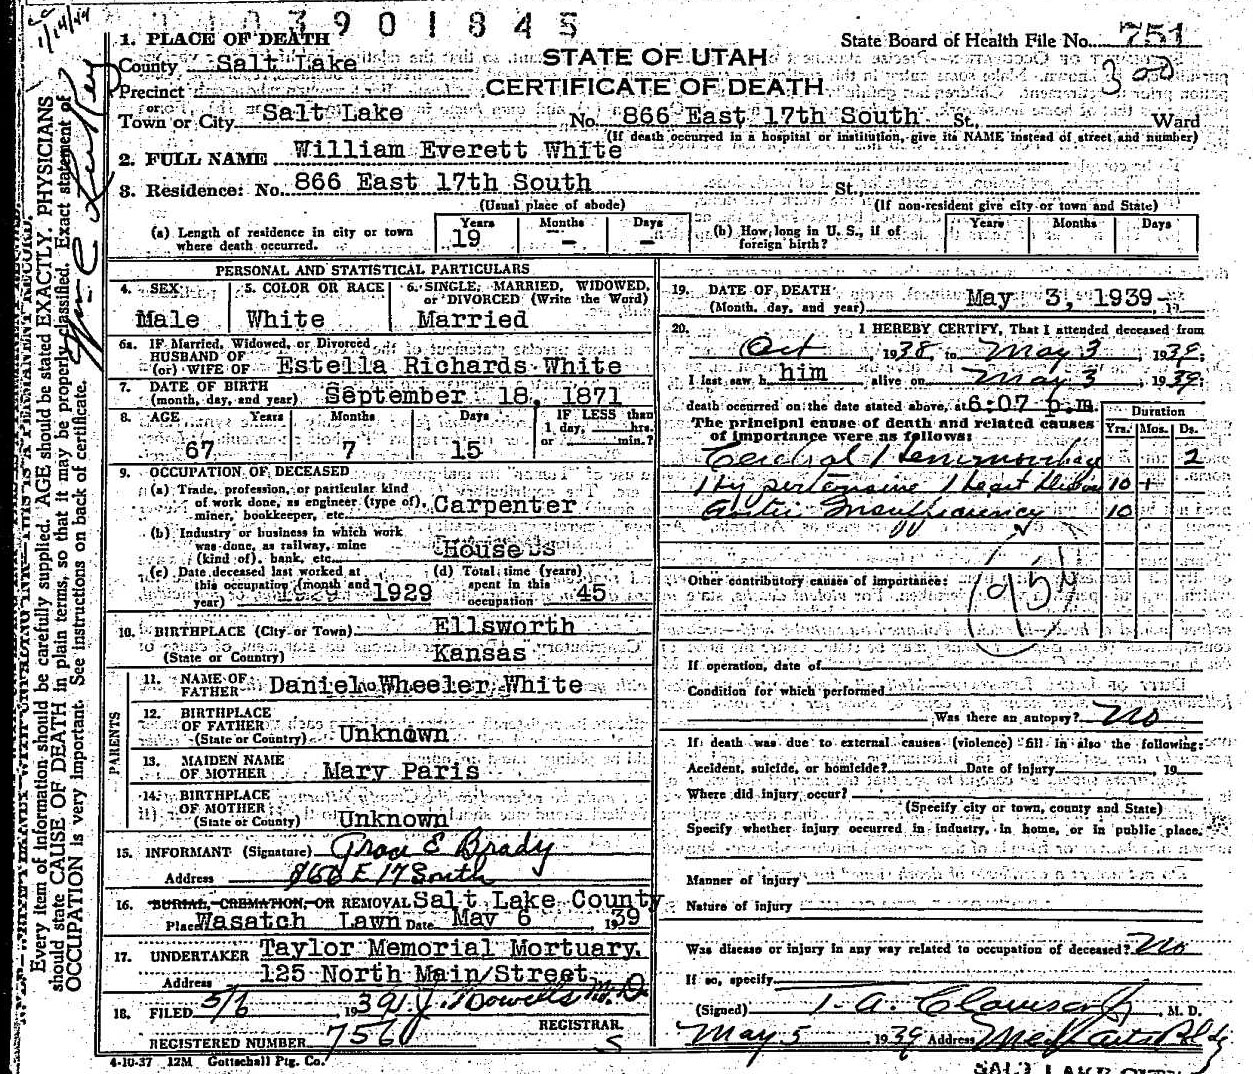 03901845
1/14/44
1. PLACE OF DEATH
County Salt Lake
Precinct
or
Town or City Salt Lake
STATE OF UTAH
CERTIFICATE OF DEATH
State Board of Health File No. 751
300
No. 866 East 17th South St. Ward
(If death occurred in a hospital or institution, give its NAME instead of street and number)
2. FULL NAME William Everett White
3. Residence: No. 866 East 17th South St.
(Usual place of abode) (If non-resident give city or town and State)
(a) Length of residence in city or town where death occurred. Years 19 Months - Days -
(b) How long in U. S., if of foreign birth? Years Months Days
PERSONAL AND STATISTICAL PARTICULARS
4. SEX Male
5. COLOR OR RACE White
6. SINGLE, MARRIED, WIDOWED, or DIVORCED (Write the Word) Married
6a. IF Married, Widowed, or Divorced
HUSBAND OF
(or) WIFE OF Estella Richards White
7. DATE OF BIRTH
(month, day, and year) September 18, 1871
8. AGE Years 67 Months 7 Days 15 IF LESS than 1 day, hrs. or min.?
9. OCCUPATION OF DECEASED
(a) Trade, profession, or particular kind
of work done, as engineer (type of),
miner, bookkeeper, etc. Carpenter
(b) Industry or business in which work
was done, as railway, mine
(kind of), bank, etc. Houses
(c) Date deceased last worked at
this occupation (month and
year) 1929
(d) Total time (years)
spent in this
occupation 45
10. BIRTHPLACE (City or Town) Ellsworth
(State or Country) Kansas
PARENTS
11. NAME OF
FATHER Daniel Wheeler White
12. BIRTHPLACE
OF FATHER
(State or Country) Unknown
13. MAIDEN NAME
OF MOTHER Mary Paris
14. BIRTHPLACE
OF MOTHER
(State or Country) Unknown
15. INFORMANT (Signature) Grace E Brady
Address 866 E 17 South
16. BURIAL, CREMATION, OR REMOVAL Salt Lake County
Place Wasatch Lawn Date May 6 1939
17. UNDERTAKER Taylor Memorial Mortuary.
Address 125 North Main Street
18. FILED 5/6 1939 M.D.
REGISTRAR.
REGISTERED NUMBER 756
4-10-37 12M Gottschall Ptg. Co.
19. DATE OF DEATH
(Month, day, and year) May 3, 1939
20. I HEREBY CERTIFY, That I attended deceased from
Oct, 1938, to May 3, 1939;
I last saw h him alive on May 3, 1939;
death occurred on the date stated above, at 6:07 p.m.
The principal cause of death and related causes
of importance were as follows:
Duration
Yrs. Mos. Ds.
Cerebral Hemmorrhage 2
Hypertensive Heart Disease 10 +
Aortic Insufficiency 10
Other contributory causes of importance:
If operation, date of
Condition for which performed
Was there an autopsy? No
If death was due to external causes (violence) fill in also the following:
Accident, suicide, or homicide? Date of injury , 19
Where did injury occur?
(Specify city or town, county and State)
Specify whether injury occurred in industry, in home, or in public place.
Manner of injury
Nature of injury
Was disease or injury in any way related to occupation of deceased? No
If so, specify
(Signed) T. A. Clawson Jr, M. D.
May 5 1939 Address Med Arts Bldg
SALT LAKE CITY
Every item of information should be carefully supplied. AGE should be stated EXACTLY. PHYSICIANS
should state CAUSE OF DEATH in plain terms, so that it may be properly classified. Exact statement of
OCCUPATION is very important. See instructions on back of certificate.